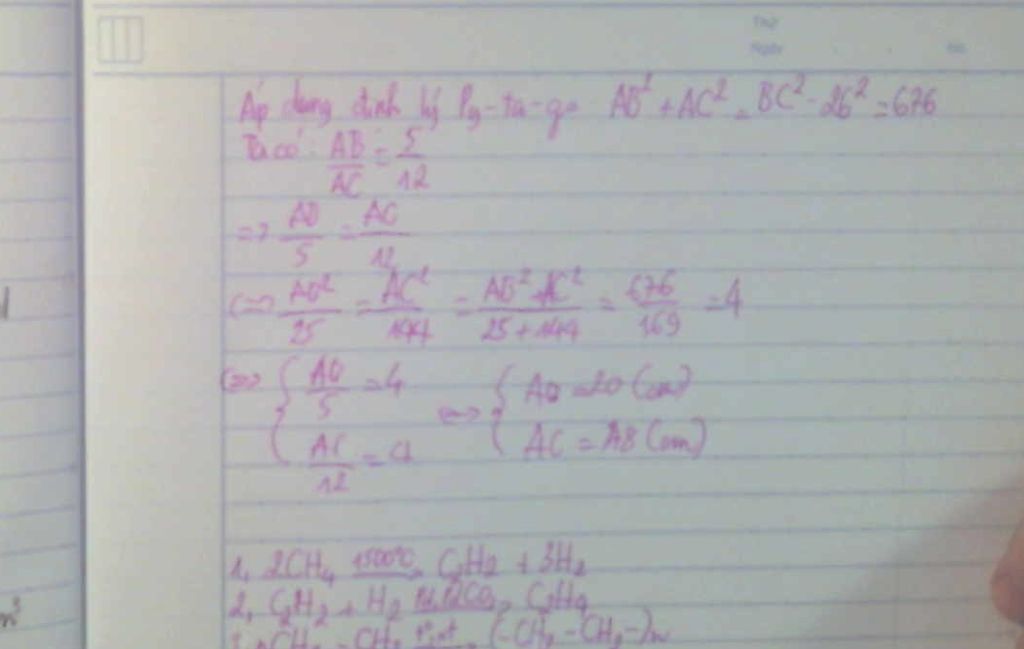 Thứ
Ngày
Áp dụng định lý Py-ta-go AB² + AC² = BC² = 26² = 676
Ta có: AB/AC = 5/12
=> AB/5 = AC/12
<=> AB²/25 = AC²/144 = (AB² + AC²)/(25 + 144) = 676/169 = 4
<=> { AB/5 = 4 <=> { AB = 20 (cm)
AC/12 = 4 AC = 48 (cm)
1, 2CH₄ 1500°C C₂H₂ + 3H₂
2, C₂H₂ + H₂ C₂H₄
(-CH₂-CH₂-)n